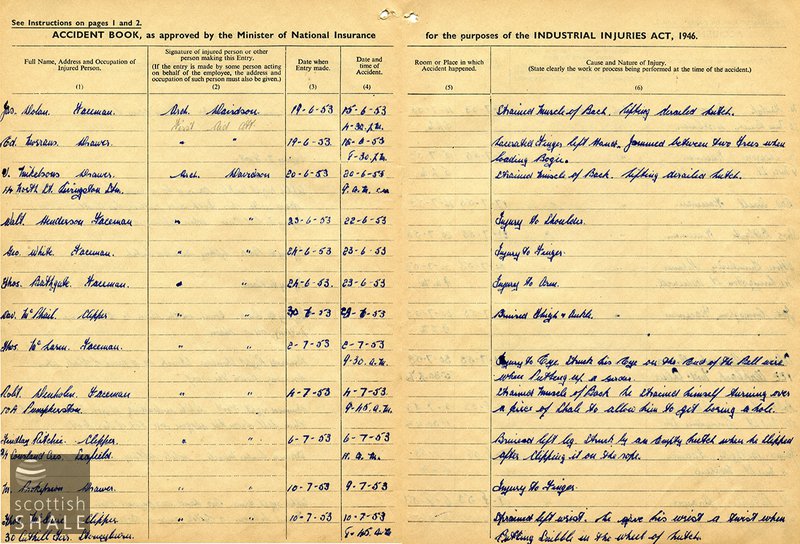 See Instructions on pages 1 and 2.
ACCIDENT BOOK, as approved by the Minister of National Insurance for the purposes of the INDUSTRIAL INJURIES ACT, 1946.
Full Name, Address and Occupation of Injured Person.
(1)
Signature of injured person or other person making this Entry.
(If the entry is made by some person acting on behalf of the employee, the address and occupation of such person must also be given.)
(2)
Date when Entry made.
(3)
Date and time of Accident.
(4)
Room or Place in which Accident happened.
(5)
Cause and Nature of Injury.
(State clearly the work or process being performed at the time of the accident.)
(6)
Jas. Dolan Faceman. Arch. Davidson 19-6-53 15-6-53 Strained Muscle of Back. lifting derailed hutch.
First Aid Att 4-30.p.m.
Ed. Drawer. " " 19-6-53 18-6-53 Lacerated Finger left Hand. Jammed between two Trees when
8-30.p.m. loading Bogie.
Drawer. Arch Davidson 20-6-53 20-6-53 Strained Muscle of Back. lifting derailed hutch.
14 North St. Livingston Stn. 9.a.m.
Walt. Henderson Faceman " " 23-6-53 22-6-53 Injury to Shoulder.
Geo. White Faceman. " " 24-6-53 23-6-53 Injury to Finger.
Thos. Bathgate Faceman. " " 24-6-53 23-6-53 Injury to Arm.
Dav. McPhail. Clipper " " 30-6-53 29-6-53 Bruised Thigh & Ankle.
Thos. McLaren. Faceman. " " 2-7-53 2-7-53
9-30.a.m. Injury to Eye. Struck his Eye on the End of the Bell wire
when Putting up a
Robt. Denholm Faceman " " 4-7-53 4-7-53 Strained Muscle of Back he Strained himself turning over
10A Pumpherston. 9-45.a.m. a piece of Shale to allow him to get boring a hole.
Findlay Ritchie. Clipper. " " 6-7-53 6-7-53 Bruised left leg. Struck by an Empty hutch when he Slipped
Cousland Cres. Seafield. 11.a.m. after Clipping it on the rope.
Drawer " " 10-7-53 9-7-53 Injury to Finger.
Thos. Clipper " " 10-7-53 10-7-53 Strained left wrist. he gave his wrist a twist when
30 Cuthill Terr. Stoneyburn. 9-45.a.m. Putting Snibble in the wheel of hutch.
scottish
SHALE